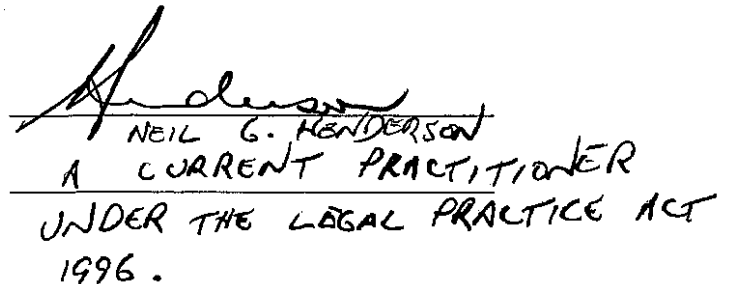 Henderson
NEIL G. HENDERSON
A CURRENT PRACTITIONER
UNDER THE LEGAL PRACTICE ACT
1996.